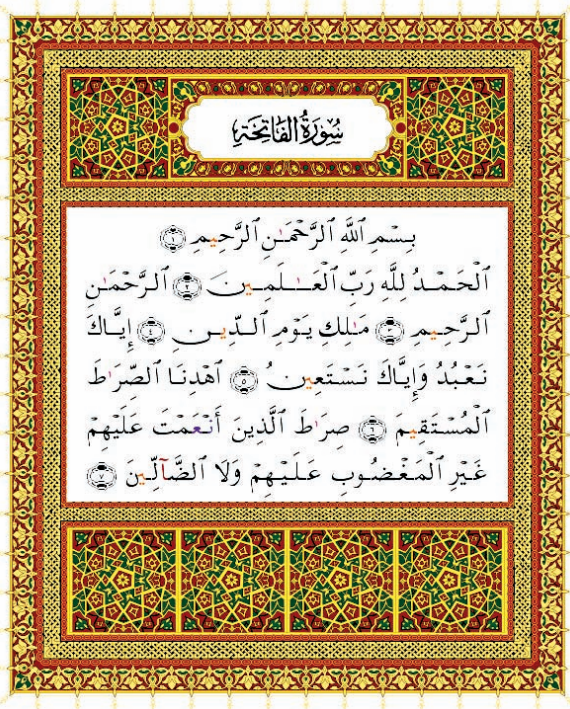 سُورَةُ الفَاتِحَةِ
بِسْمِ ٱللَّهِ ٱلرَّحْمَـٰنِ ٱلرَّحِيمِ ١
ٱلْحَمْدُ لِلَّهِ رَبِّ ٱلْعَـٰلَمِينَ ٢ ٱلرَّحْمَـٰنِ
ٱلرَّحِيمِ ٣ مَـٰلِكِ يَوْمِ ٱلدِّينِ ٤ إِيَّاكَ
نَعْبُدُ وَإِيَّاكَ نَسْتَعِينُ ٥ ٱهْدِنَا ٱلصِّرَٰطَ
ٱلْمُسْتَقِيمَ ٦ صِرَٰطَ ٱلَّذِينَ أَنْعَمْتَ عَلَيْهِمْ
غَيْرِ ٱلْمَغْضُوبِ عَلَيْهِمْ وَلَا ٱلضَّآلِّينَ ٧